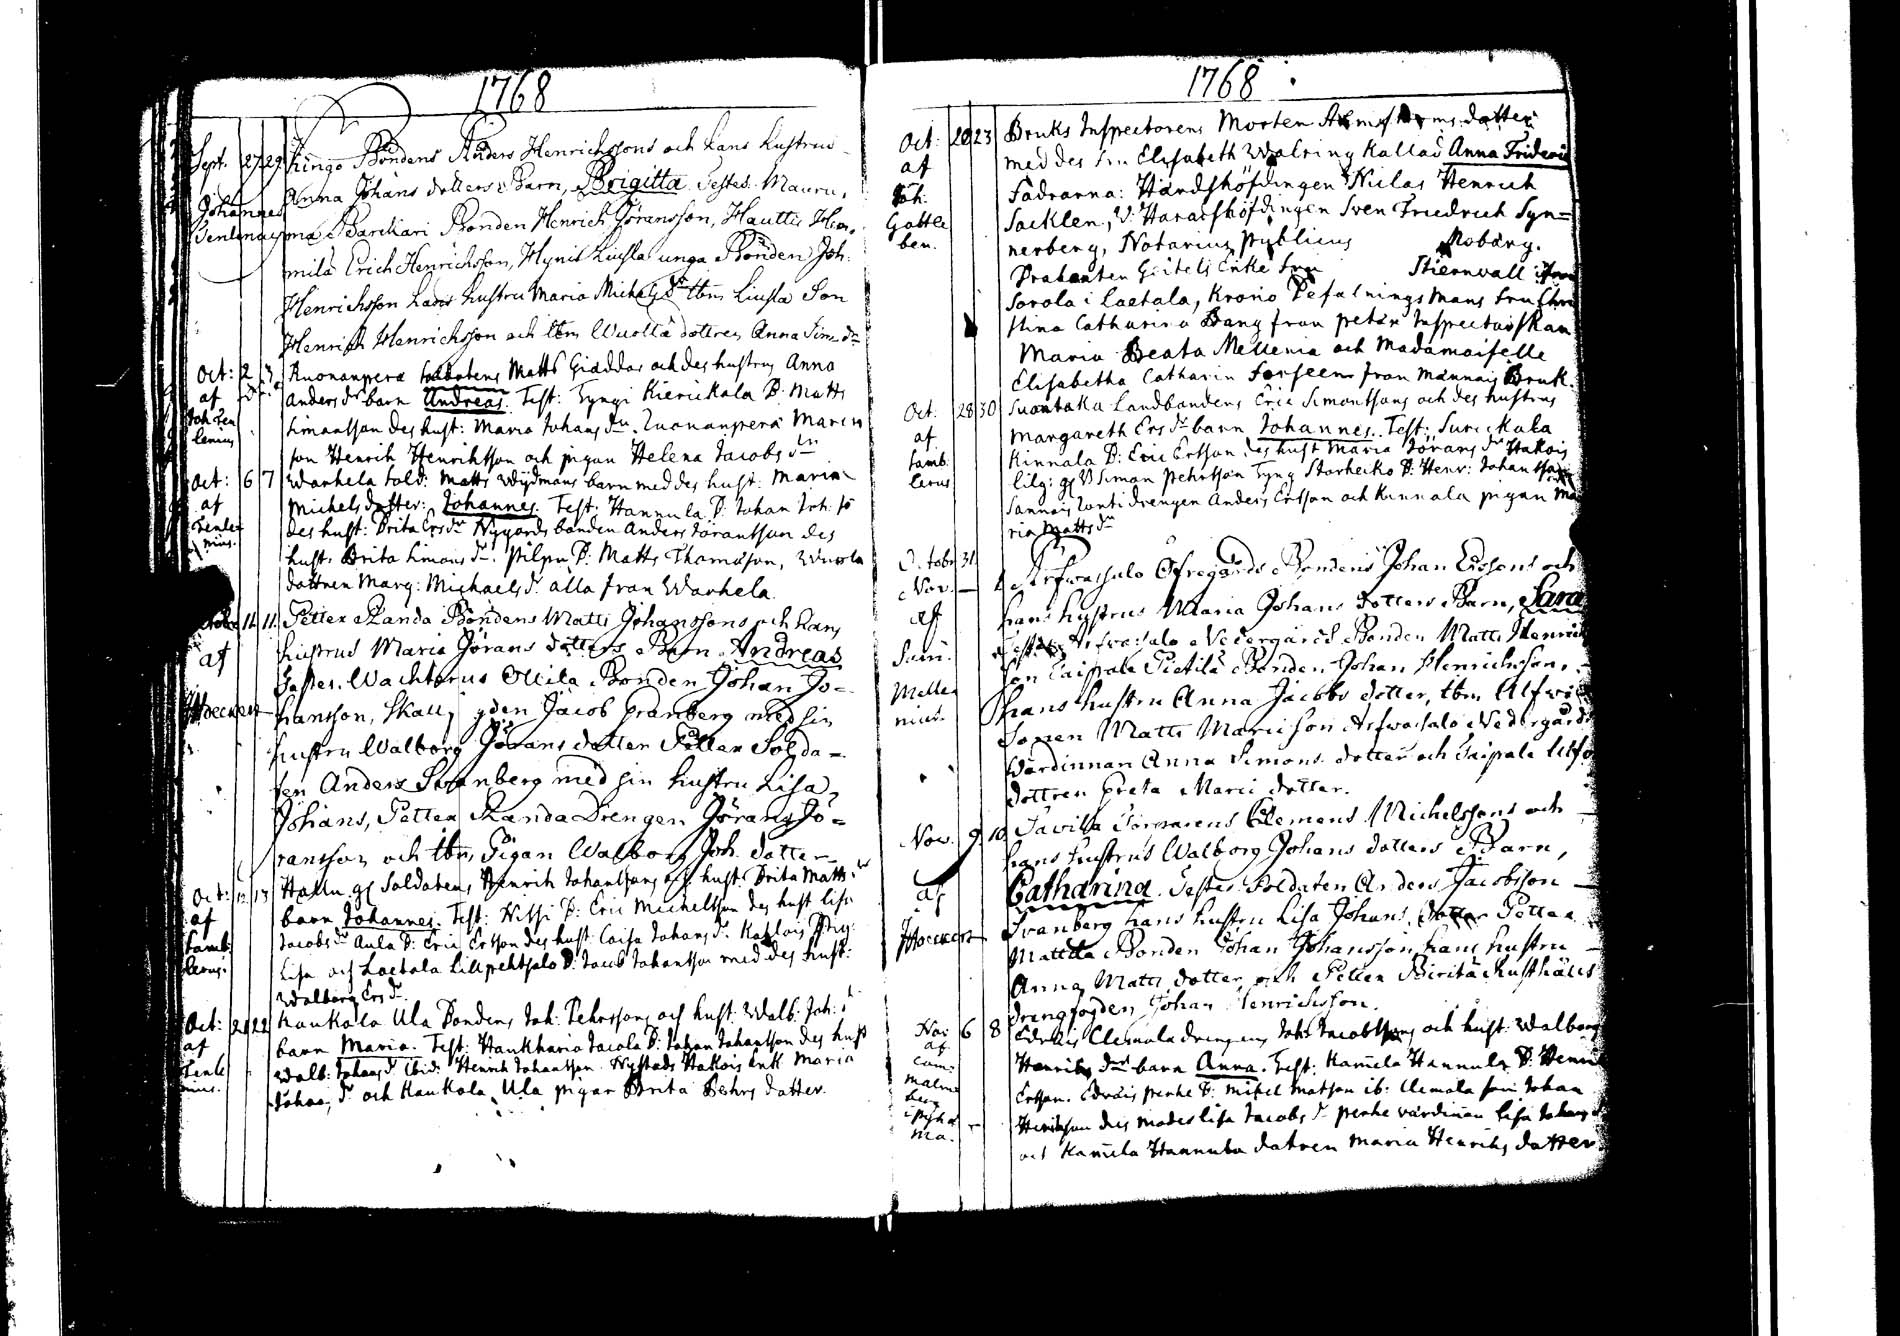 1768
Sept. 27 29 Kingo Bondens Anders Henrichssons och hans hustrus
Anna Johans dotters Barn, Brigitta. Testes. Mauru,
Johannes
Tenlenius Barikari Bonden Henrich Göransson, Hauttis Hen.
mila Erich Henrichsson, Hynis Liusla unga Bonden Joh.
Henrichsson hans hustru Maria Michels dr ibm Liusla Son
Henrich Henrichsson och ibm Wuolta dottren Anna Sim dr
Oct: 2 3 Ruonanpera Matts Giäddas och des hustrus Anna
af Anders dr barn Andreas. Test: Tyngi Kierickala B: Matts
Joh Ten Simontson des hust: Maria Johans dr. Ruonanpera Marcus
lenius son Henrik Henriksson och pigan Helena Jacobs dr
Oct: 6 7 Warhela Sold: Matts Wydmans barn med des hust: Maria
af Michels dotter: Johannes. Test. Hannula B: Johan Joh: so
Tenle des hust: Brita Ers dr Nygords bonden Anders Jörantson des
nius. hust: Brita Simons dr. Pilpu B: Matts Thomasson, Wuola
dottren Marg: Michaels dr alla fran Warhela.
11. 11. Petter Randa Bondens Matts Johanssons och hans
af hustrus Maria Görans dotters Barn Andreas
Testes. Wachterus Ollila Bonden Johan Jo-
JHoeckert hansson, Jacob Granberg med sin
hustru Walborg Görans dotter Petter Solda-
ten Anders Swanberg med sin hustru Lisa
Johans, Petter Randa Drengen Görans Jö-
ransson och ibm Pigan Walborg Joh. dotter
Oct: 12 13 Hallu gs Soldatens Henrich Johantsons och hust: Brita Matts dr
af barn Johannes. Test: Nissi B: Eric Micheltson des hust Lisa
Lamb: Jacobs dr Aula B: Eric Ertson des hust: Caisa Johans dr. Kahlois
lerus: Lisa och Laetala Lillpehtsalo B: Jacob Johantson med des hust:
Walborg Ers dr.
Oct: 21 22 Kaukola Ula Bondens Joh: Pehrssons och hust: Walb: Joh: dr
af barn Maria. Test: Haukkaria Jacola B: Johan Johantson des hust
Tenle Walb: Johans dr ibid: Henrich Johantson. Nystads Hakois Enk Maria
nius. Johans dr och Kaukola Ula pigan Brita Pehrs datter.
1768
Oct: 20 23 Bruks Inspectorens Morten datter
af med des fru Elisabeth Walring Kallad Anna Frideric
Joh: Fadrarna: Häradshöfdingen Niclas Henrich
Gottle Sacklen, V: Haradshöfdingen Sven Friedrich Syn=
ben. nerberg, Notarius publicus Mobärg.
Enke fru Stiernvall fran
Sorola i Laetala, Krono Befalningsmans fru Chri
stina Catharina Bang fran
Maria Beata Mellenia och Madamoiselle
Elisabetha Catharin Forseen fran Männais Bruk.
Oct: 28 30 Suontaka Landbondens Eric Simontsons och des hustrus
af Margareth Ers dr barn Johannes. Test: Surickala
Lamb Kinnala B: Eric Ertson des hust Maria Jörans dr Hakois
lerus lilg: gs B Simon Pehrtson Tyng Starkeiko B: Henr: Johantson
Sannais Lonti drengen Anders Ertson och Kinnala pigan Ma
ria Matts dr
Octobr 31.
Nov. — 1 Arfwassalo Öfregårds Bondens Johan Ericsons och
af hans hustrus Maria Johans dotters Barn, Sara
Sam: Testes Arfwasalo Nedergårds Bonden Matts Henrich
son Taipale Pietilä Bonden Johan Henrichsson,
Melle hans hustru Anna Jacobs dotter, ibm
nius. Sonen Matts Maricson Arfwasalo Nedergårds
Wärdinnan Anna Simons dotter och Taipale
dottren Greta Marii dotter.
Nov. 9. 10 Tavilla Torparens Clemens Michelssons och
hans hustrus Walborg Johans dotters Barn,
af Catharina. Testes. Soldaten Anders Jacobsson
JHoeckert Svanberg hans hustru Lisa Johans dotter Petter
Mattila Bonden Johan Johansson, hans hustru
Anna Matts dotter och Petter
drengfogden Johan Henrichsson.
Nov: 6 8 Edväis Clemola drengens Johs Jacobtsons och hust: Walborg
af Henriks dr barn Anna. Test: Kamela Hannula B: Henrik
com: Ertson. Edväis penke B: Mikel Matson ib: Clemola son Johan
Malm Henrikson des moder Lisa Jacobs dr penke värdinan Lisa Johans dr
berg
i Pyhä
ma. och Kamela Hannula dotren Maria Henriks datter.